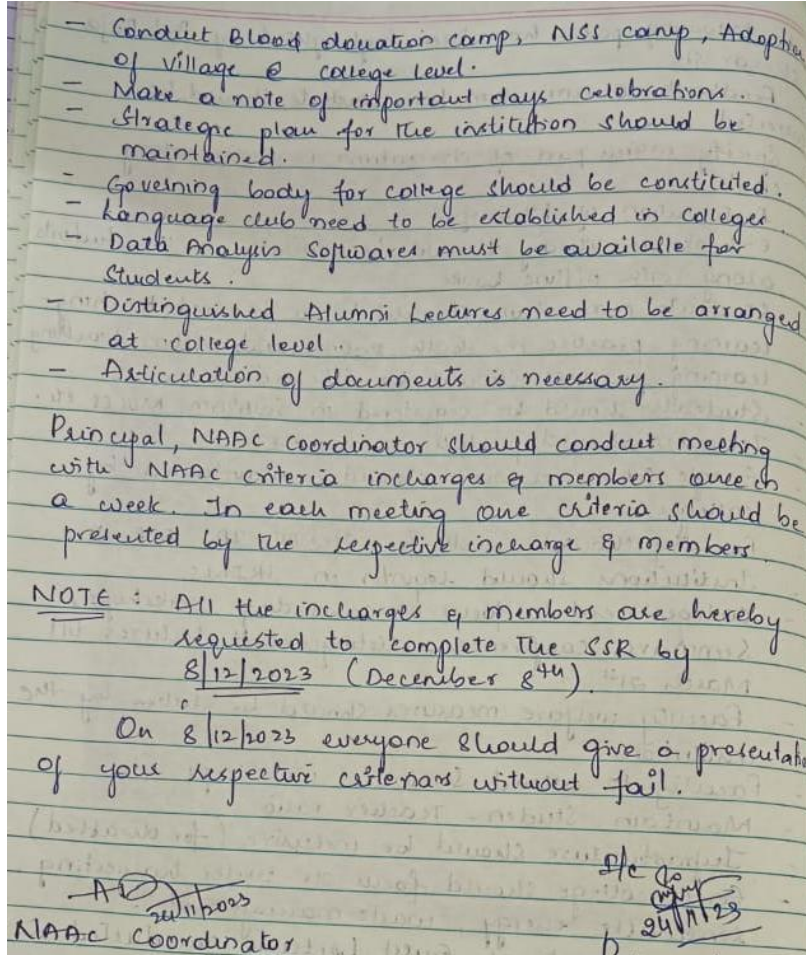 - Conduct Blood donation camp, NSS camp, Adoption
of village @ college level.
- Make a note of important days celebrations.
- Strategic plan for the institution should be
maintained.
- Governing body for college should be constituted.
- Language club need to be established in colleges.
- Data Analysis Softwares must be available for
Students.
- Distinguished Alumni Lectures need to be arranged
at college level.
- Articulation of documents is necessary.
Principal, NAAC coordinator should conduct meeting
with NAAC criteria incharges & members once in
a week. In each meeting one criteria should be
presented by the respective incharge & members.
NOTE : All the incharges & members are hereby
requested to complete the SSR by
8/12/2023 (December 8th).
On 8/12/2023 everyone should give a presentatio
of your respective criterians without fail.
24/11/2023
24/11/23
NAAC Coordinator